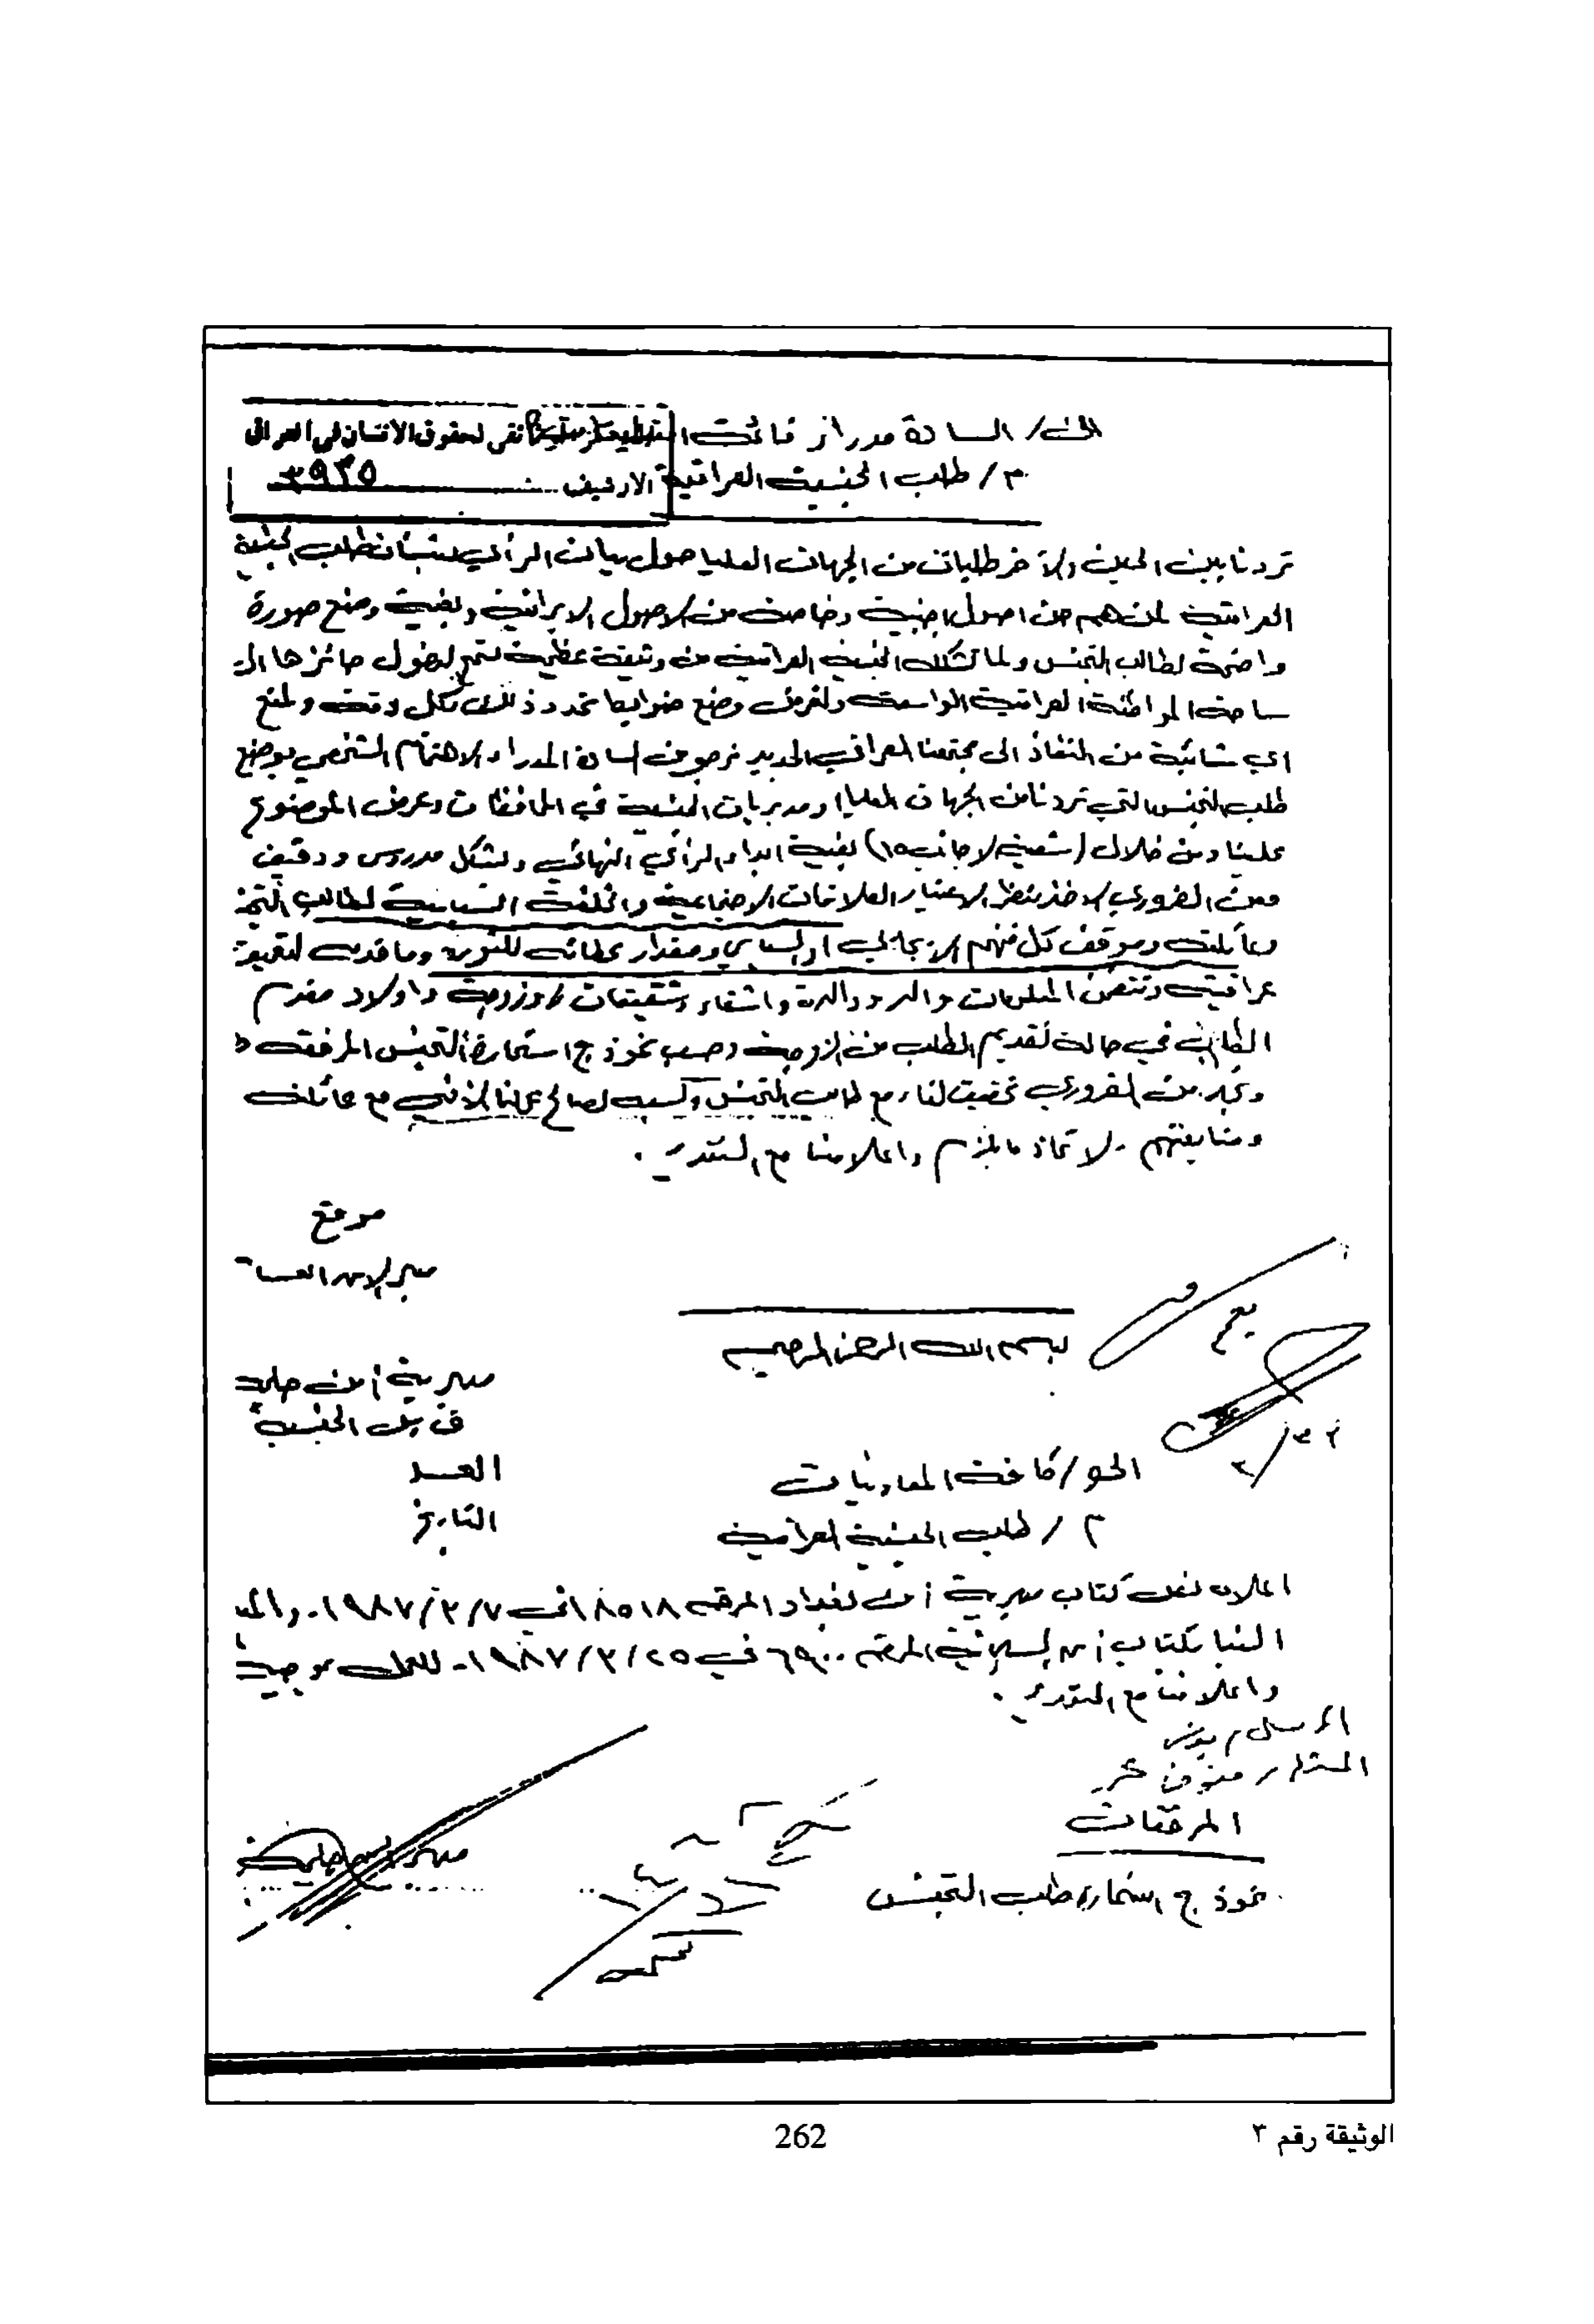 الى/ السادة مدراء
الوثائقي لحقوق الانسان في العراق
م/ طلب الجنسية العراقية
الارشيف ٣٩٢٥
تردنا بين الحين والآخر طلبات من الجهات العليا حول بيان الرأي بشأن طلب الجنسية
العراقية لمن هم من اصول اجنبية وخاصة من الاصول الايرانية وبغية وضع صورة
واضحة لطالب التجنس ولما تشكله الجنسية العراقية من وثيقة عظيمة تتيح لدخول حائزها الى
ساحة المواطنة العراقية الواسعة ولغرض وضع ضوابط تحدد ذلك بكل دقة ولمنع
اي شائبة من النفاذ الى مجتمعنا العراقي الجديد نرجو من السادة المدراء الاهتمام الشخصي بوضع
طلب التجنس التي تردنا من الجهات العليا ومديريات الجنسية في المحافظات وعرض الموضوع
علينا ومن خلال (شعبة الاجانب ١٥) بغية ابداء الرأي النهائي وبشكل مدروس ودقيق
ومن الضروري الاخذ بنظر الاعتبار العلاقات الاجتماعية والخلفية السياسية لطالب
وعائلته وموقف كل منهم الايجابي او السلبي ومقدار عطائه للثورة وما قدمه
عراقية وتتضمن المعلومات والده ووالدته واشقاء وشقيقات وزوجة واولاد مقدم
الطلب في حالة تقديم الطلب من الزوجة وحسب نموذج استمارة التجنس المرفقة
ونجد من الضروري تحقيق لقاء مع طالب التجنس وكسبه لصالح عملنا الامني مع عائلته
ومتابعتهم. لاتخاذ ما يلزم واعلامنا مع التقدير.
موقع
مدير الامن العام
بسم الله الرحمن الرحيم
مديرية أمن
العدد
التاريخ
الى/ كافة المعاونيات
م/ طلب الجنسية العراقية
اعلاه نص كتاب مديرية أمن بغداد المرقم ١٨٥١٨ في ١٩٨٧/٣/٧.
الينا بكتاب المرقم ٦٩٠٠ في ١٩٨٧/٣/٢٥. للعمل بموجبه
واعلامنا مع التقدير.
المرفقات
نموذج استمارة طلب التجنس
الوثيقة رقم ٣
262